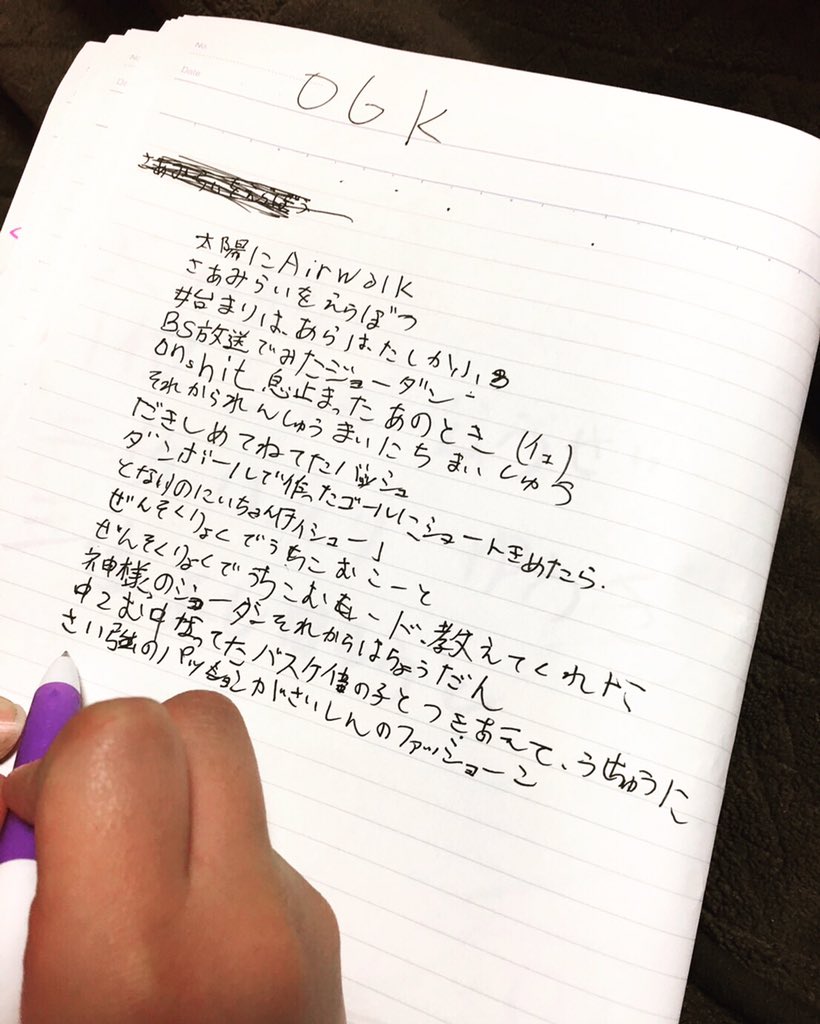 No.
Date
OGK
さあみらいをえらぼう
太陽にAirwalk
さあみらいをえらぼつ
始まりは、あらは、たしか小3
BS放送でみたジョーダン
onshit 息止まったあのとき(イェ)
それかられんしゅうまいにちまいしゅう
だきしめてねてたバッシュ
ダンボールで作ったゴールにショートきめたら.
となりのにいちゃん「ナイシュー」
ぜんそくりょくでうちこむこーと
ぜんそくりょくでうちこむ ード、教えてくれた
神様のジョーダンそれからはちょうだん
中2む中なってたバスケ の子とつきあえて、うちゅうに
さい強のパッションがさいしんのファッショーン